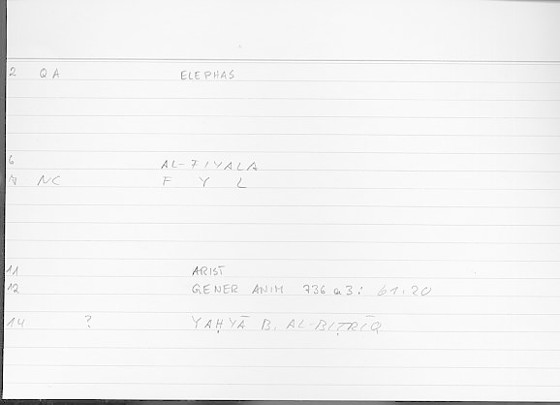 2 QA ELEPHAS
6 AL-FIYALA
NC F Y L
11 ARIST
12 GENER ANIM 736 a 3: 61.20
14 ? YAḤYĀ B. AL-BIṬRĪQ